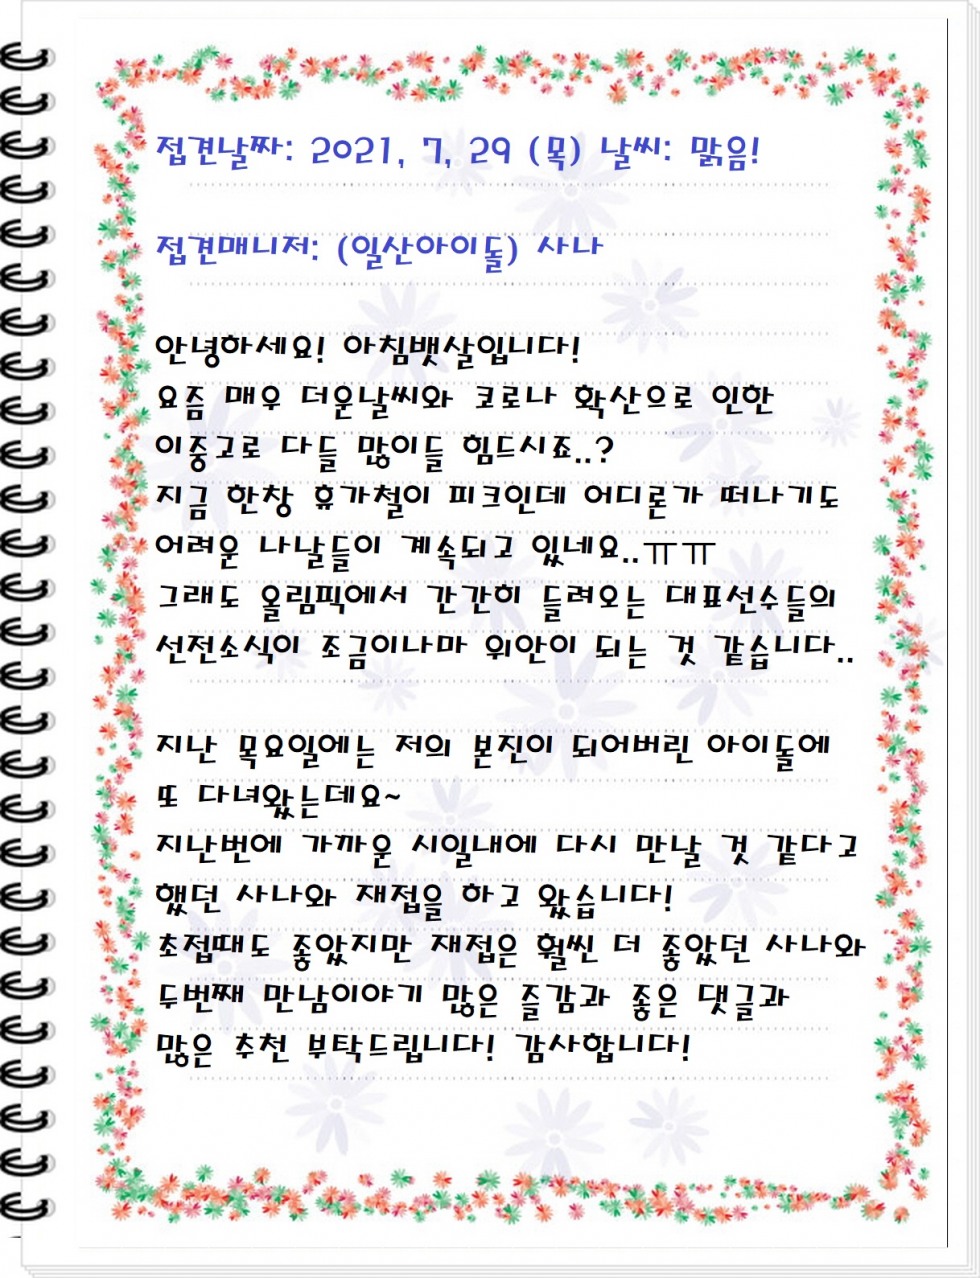 접견날짜: 2021, 7, 29 (목) 날씨: 맑음!
접견매니저: (일산아이돌) 사나
안녕하세요! 아침뱃살입니다!
요즘 매우 더운날씨와 코로나 확산으로 인한
이중고로 다들 많이들 힘드시죠..?
지금 한창 휴가철이 피크인데 어디론가 떠나기도
어려운 나날들이 계속되고 있네요..ㅠㅠ
그래도 올림픽에서 간간히 들려오는 대표선수들의
선전소식이 조금이나마 위안이 되는 것 같습니다..
지난 목요일에는 저의 본진이 되어버린 아이돌에
또 다녀왔는데요~
지난번에 가까운 시일내에 다시 만날 것 같다고
했던 사나와 재접을 하고 왔습니다!
초접때도 좋았지만 재접은 훨씬 더 좋았던 사나와
두번째 만남이야기 많은 즐감과 좋은 댓글과
많은 추천 부탁드립니다! 감사합니다!